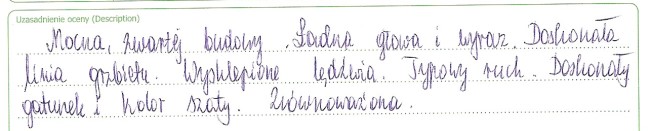 Uzasadnienie oceny (Description)
Mocna, zwartej budowy. Ładna głowa i wyraz. Doskonała
linia grzbietu. Wysklepione lędźwia. Typowy ruch. Doskonały
gatunek i kolor szaty. Zrównoważona.